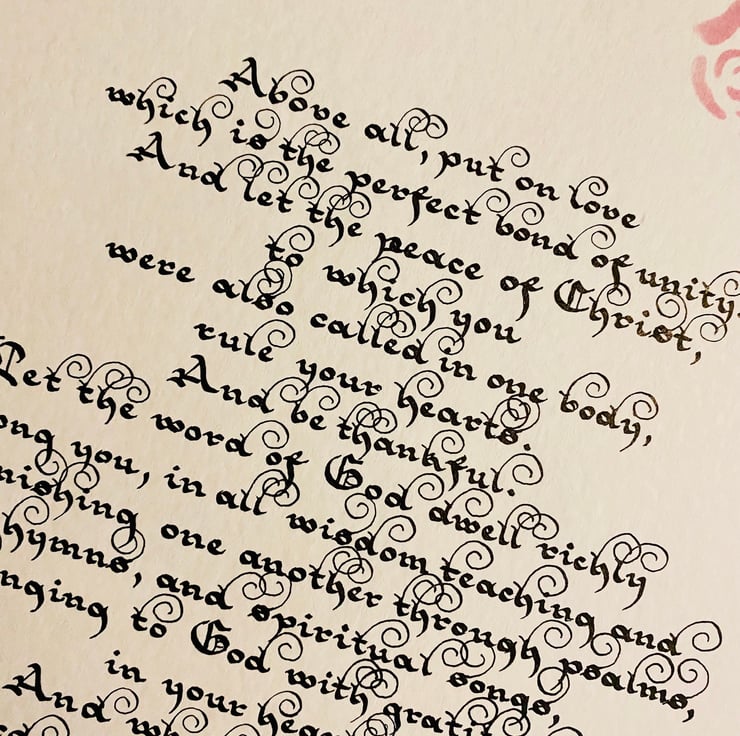 Above all, put on love
which is the perfect bond of unity.
And let the peace of Christ,
to which you
were also called in one body,
rule your hearts.
And be thankful.
Let the word of God dwell richly
ong you, in all wisdom teaching and
nishing one another through psalms,
hymns, and spiritual songs,
nging to God with gratit
in your hea
And wh